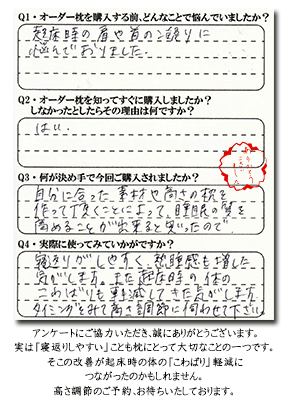 Q1・オーダー枕を購入する前、どんなことで悩んでいましたか?
起床時の肩や首のこ張りに
悩んでおりました.
Q2・オーダー枕を知ってすぐに購入しましたか?
しなかったとしたらその理由は何ですか?
はい.
Q3・何が決め手で今回ご購入されましたか?
自分に合った素材や高さの枕を
作って頂くことによって、睡眠の質を
高めることが出来ると思ったので
Q4・実際に使ってみていかがですか?
寝返りがしやすく、熟睡感も増した
気がします。また起床時の体の
こわばりも軽減してきた気がします
タイミングをみて高さ調節に伺わせて下さい
アンケートにご協力いただき、誠にありがとうございます。
実は「寝返りしやすい」ことも枕にとって大切なことの一つです。
そこの改善が起床時の体の「こわばり」軽減に
つながったのかもしれません。
高さ調節のご予約、お待ちいたしております。